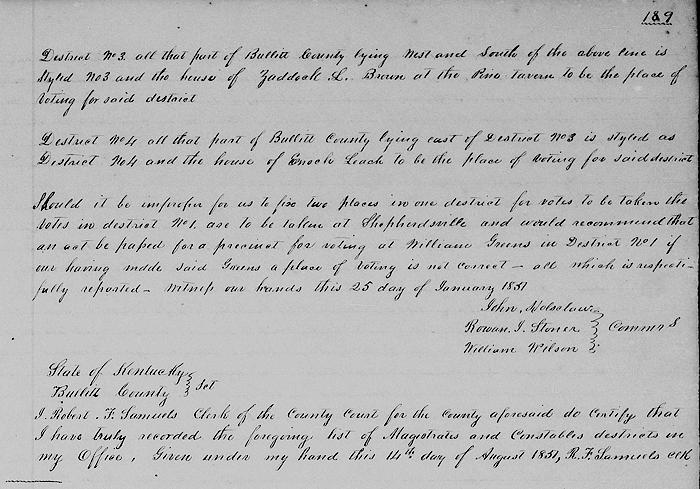 189
District No 3. all that part of Bullitt County lying West and South of the above line is
styled No 3 and the house of Zaddock L. Brown at the tavern to be the place of
Voting for said district
District No 4 all that part of Bullitt County lying east of District No 3 is styled as
District No 4 and the house of Enoch Leach to be the place of voting for said district
Should it be improper for us to fix two places in one district for votes to be taken the
Votes in district No 1. are to be taken at Shepherdsville and would recommend that
an act be passed for a precinct for voting at William Greens in District No 1 if
our having made said Greens a place of Voting is not correct – all which is respect-
fully reported – Witness our hands this 25 day of January 1851
John, Holsclaw
Rowan. I. Stoner } Commrs
William Wilson
State of Kentucky
Bullitt County } Sct
I. Robert. F. Samuels Clerk of the County Court for the County aforesaid do Certify, that
I have truly recorded the foregoing list of Magistrates and Constables districts in
my Office. Given under my hand this 14th day of August 1851, R. F. Samuels Clk